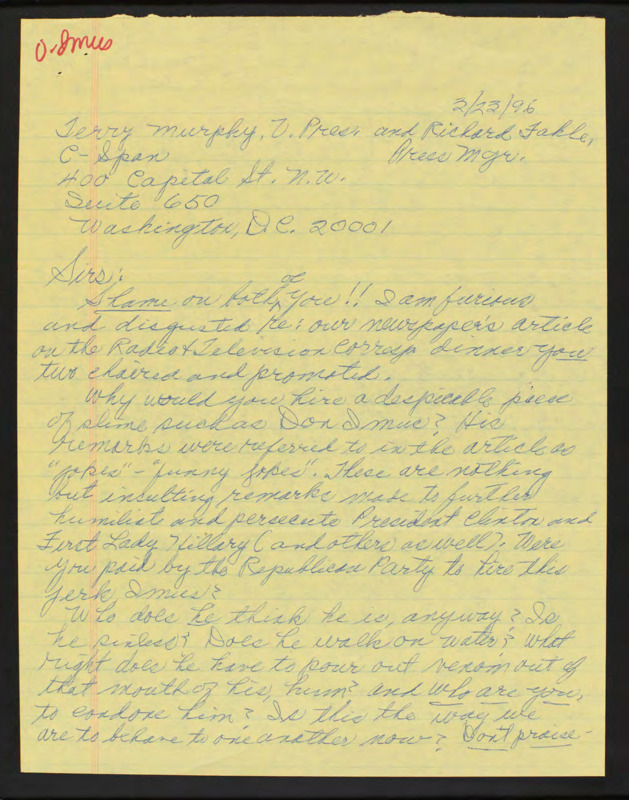 O-Imus
3/23/96
Terry Murphy, V. Pres. and Richard Fahle,
C-Span Press Mgr.
400 Capital St. N.W.
Suite 650
Washington, D.C. 20001
Sirs:
Shame on both of You!! I am furious
and disgusted re: our newspaper's article
on the Radio & Television Corresp. dinner you
two chaired and promoted.
Why would you hire a despicable piece
of slime such as Don Imus? His
remarks were referred to in the article as
"jokes" - "funny jokes". These are nothing
but insulting remarks made to further
humiliate and persecute President Clinton and
First Lady Hillary (and others as well). Were
you paid by the Republican Party to hire this
jerk Imus?
Who does he think he is, anyway? Is
he sinless? Does he walk on water? What
right does he have to pour out venom out of
that mouth of his, hum? and who are you,
to condone him? Is this the way we
are to behave to one another now? Don't praise-